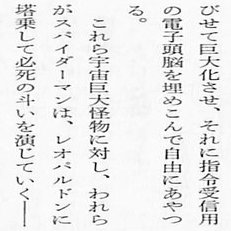 びせて巨大化させ、それに指令受信用
の電子頭脳を埋めこんで自由にあやつ
る。
　これら宇宙巨大怪物に対し、われら
がスパイダーマンは、レオパルドンに
塔乗して必死の斗いを演じていく──